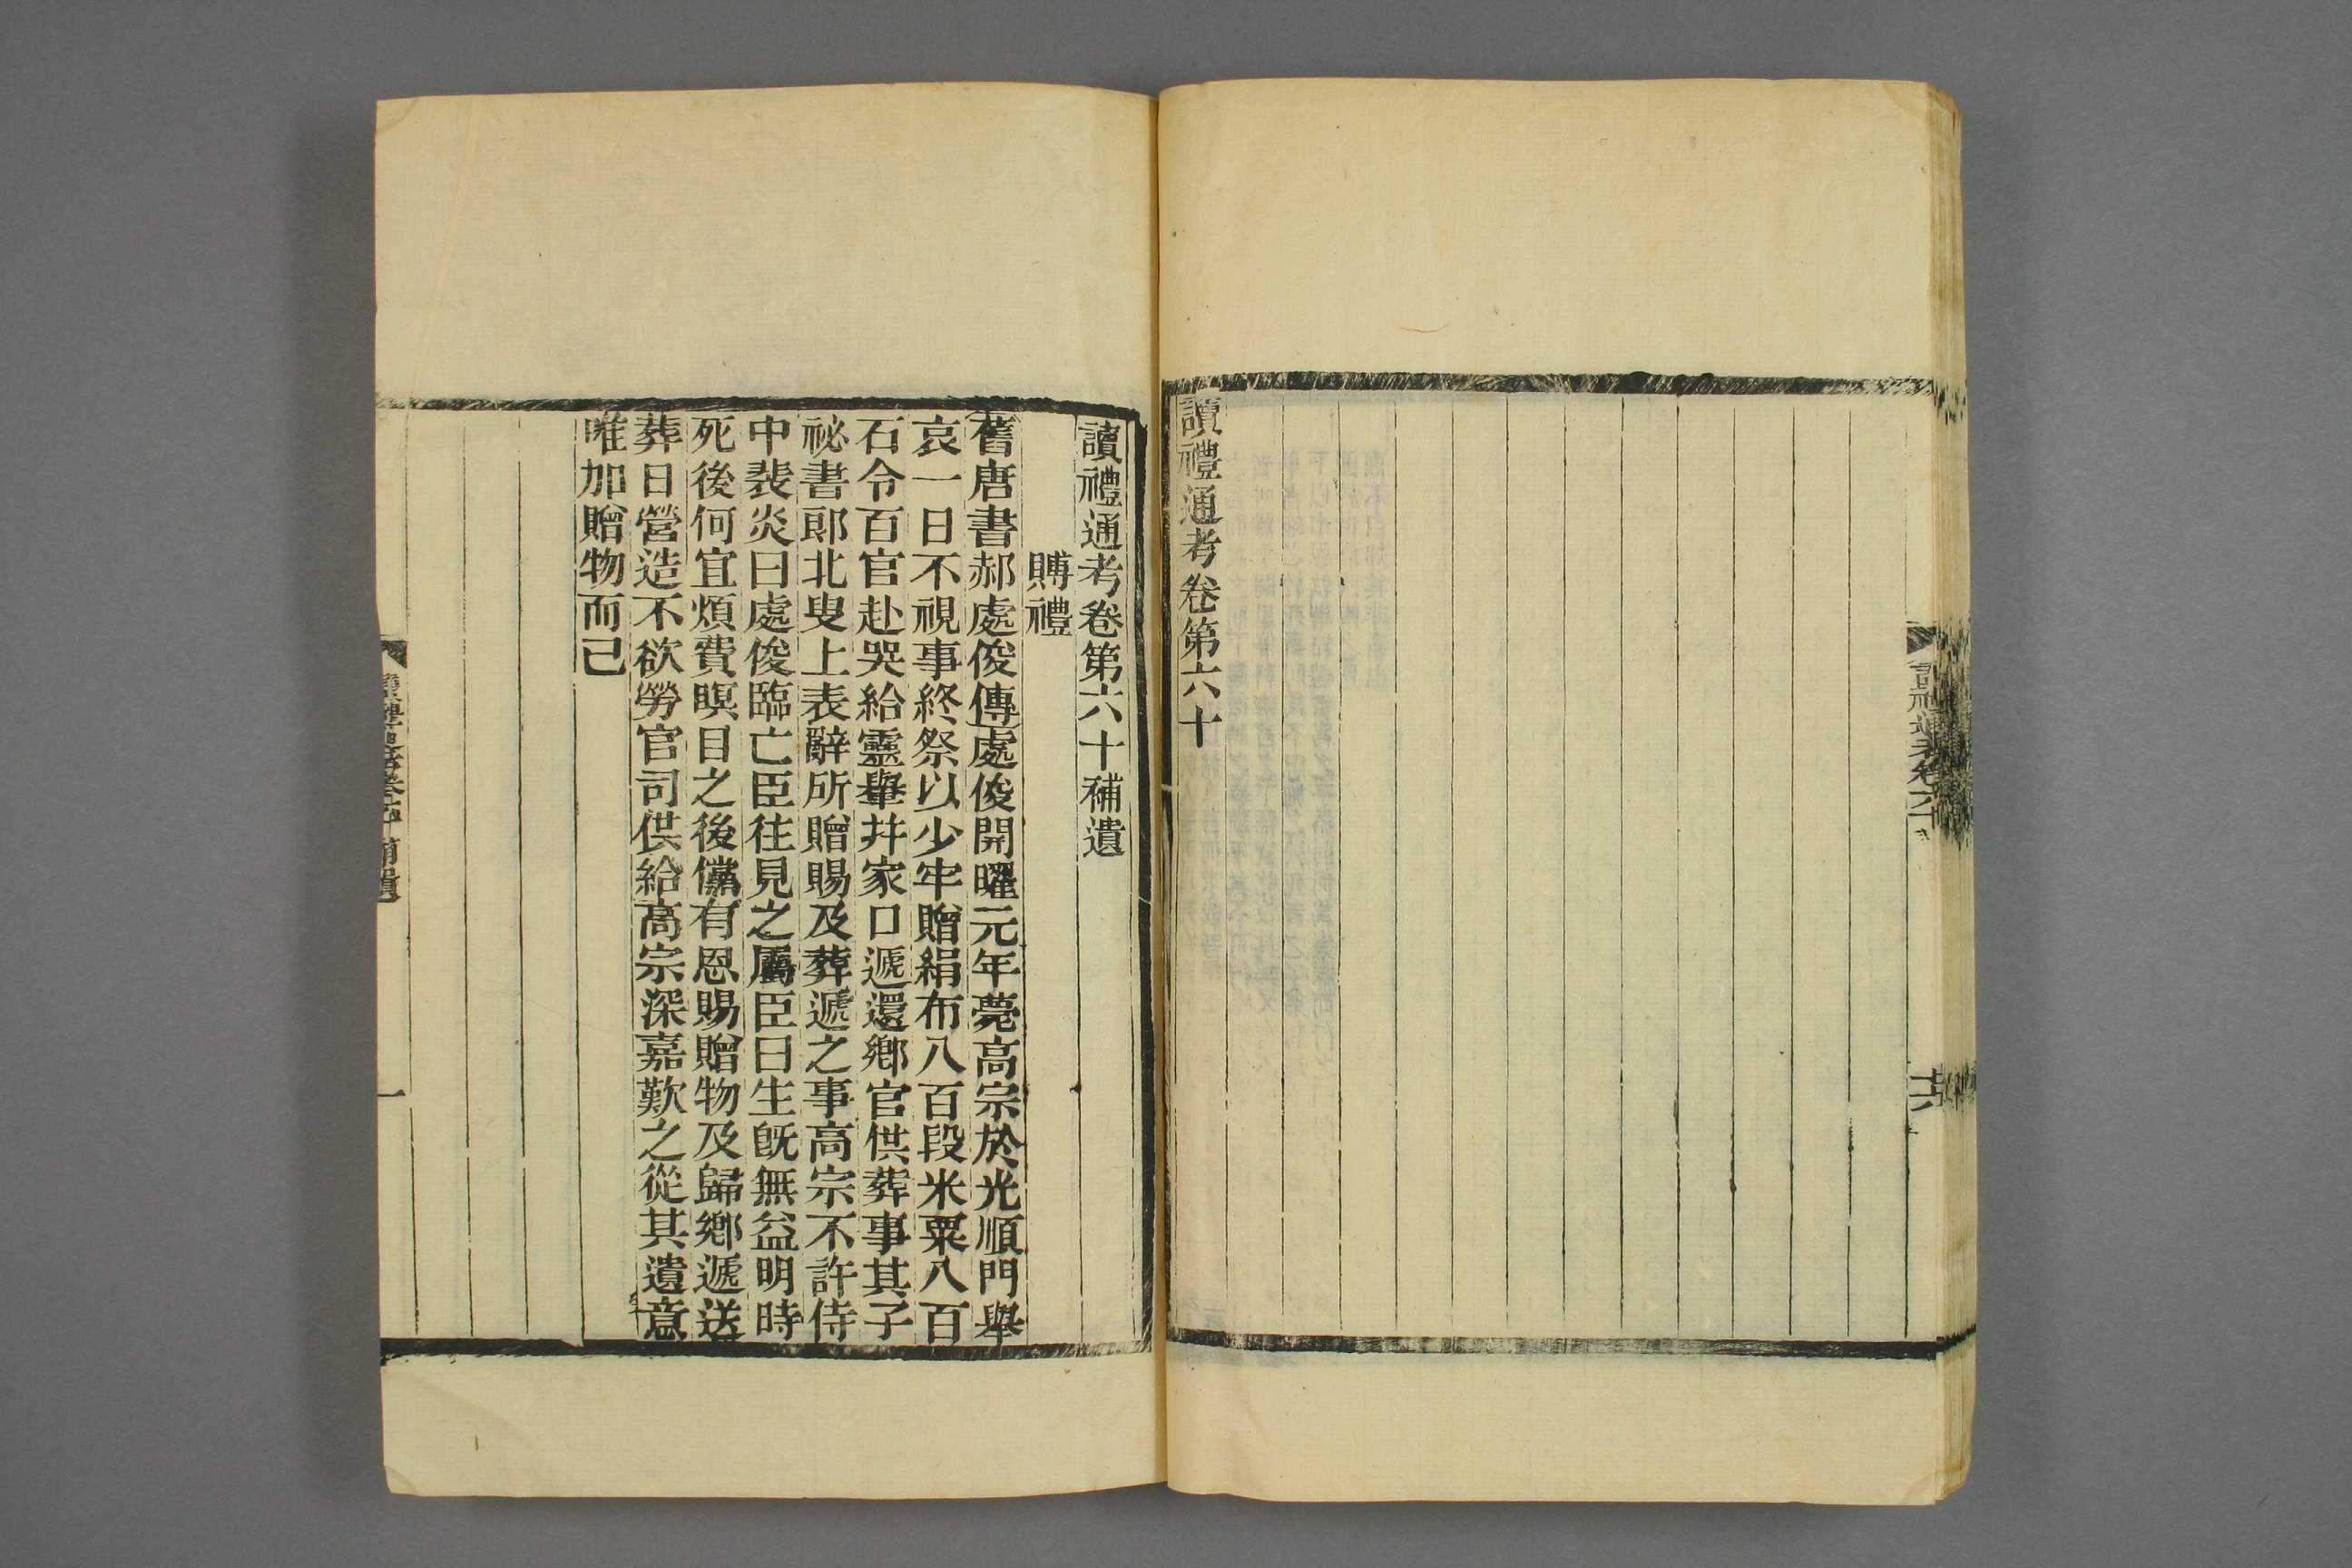 讀禮通考卷第六十
讀禮通考卷第六十補遺
賻禮
舊唐書郝處俊傳處俊開曜元年薨高宗於光順門舉
哀一日不視事終祭以少牢贈絹布八百段米粟八百
石令百官赴哭給靈轝幷家口遞還鄉官供葬事其子
祕書郞北叟上表辭所贈賜及葬遞之事高宗不許侍
中裴炎曰處俊臨亡臣往見之屬臣曰生旣無益明時
死後何宜煩費瞑目之後儻有恩賜贈物及歸鄉遞送
葬日營造不欲勞官司供給高宗深嘉歎之從其遺意
唯加贈物而已
一